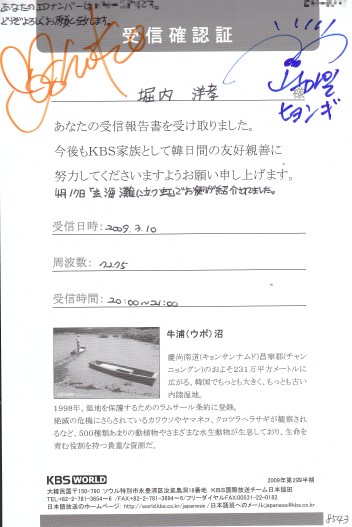 あなたのIDナンバーは
どうぞよろしくお願い致します。
受信確認証
堀内 洋孝 様
ヒョンギ
あなたの受信報告書を受け取りました。
今後もKBS家族として韓日間の友好親善に
努力してくださいますようお願い申し上げます。
4月17日「玄海灘に立つ虹」でお便り紹介されました。
受信日時: 2009.3.10
周波数: 7275
受信時間: 20:00~21:00
牛浦(ウポ)沼
慶尚南道(キョンサンナムド)昌寧郡(チャン
ニョングン)のおよそ231万平方メートルに
広がる、韓国でもっとも大きく、もっとも古い
内陸湿地。
1998年、湿地を保護するためのラムサール条約に登録。
絶滅の危機にさらされているカワウソやヤマネコ、クロツラヘラサギが観察され
るなど、500種類あまりの動植物やさまざまな水生動物が生息しており、生命を
育む役割を持つ貴重な資源だ。
KBS WORLD
2009年第2四半期
大韓民国〒150-790 ソウル特別市永登浦区汝矣島洞18番地 KBS国際放送チーム日本語班
TEL+82-2-781-3654~6 / FAX+82-2-781-3694~6/フリーダイヤルFAX00531-22-0182
日本語放送のホームページ: http://world.kbs.co.kr/japanese / 日本語班へのメールjapanese@kbs.co.kr
8543